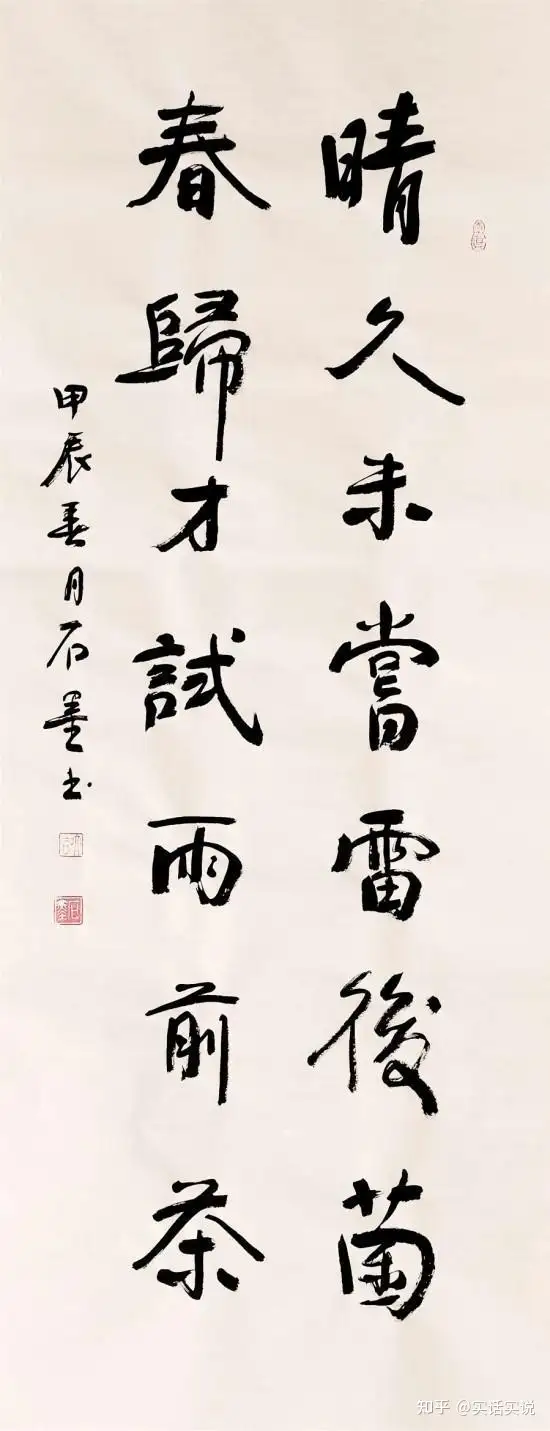 晴久未嘗雷後菌
春歸才試雨前茶
甲辰春月石墨书
知乎 @实话实说